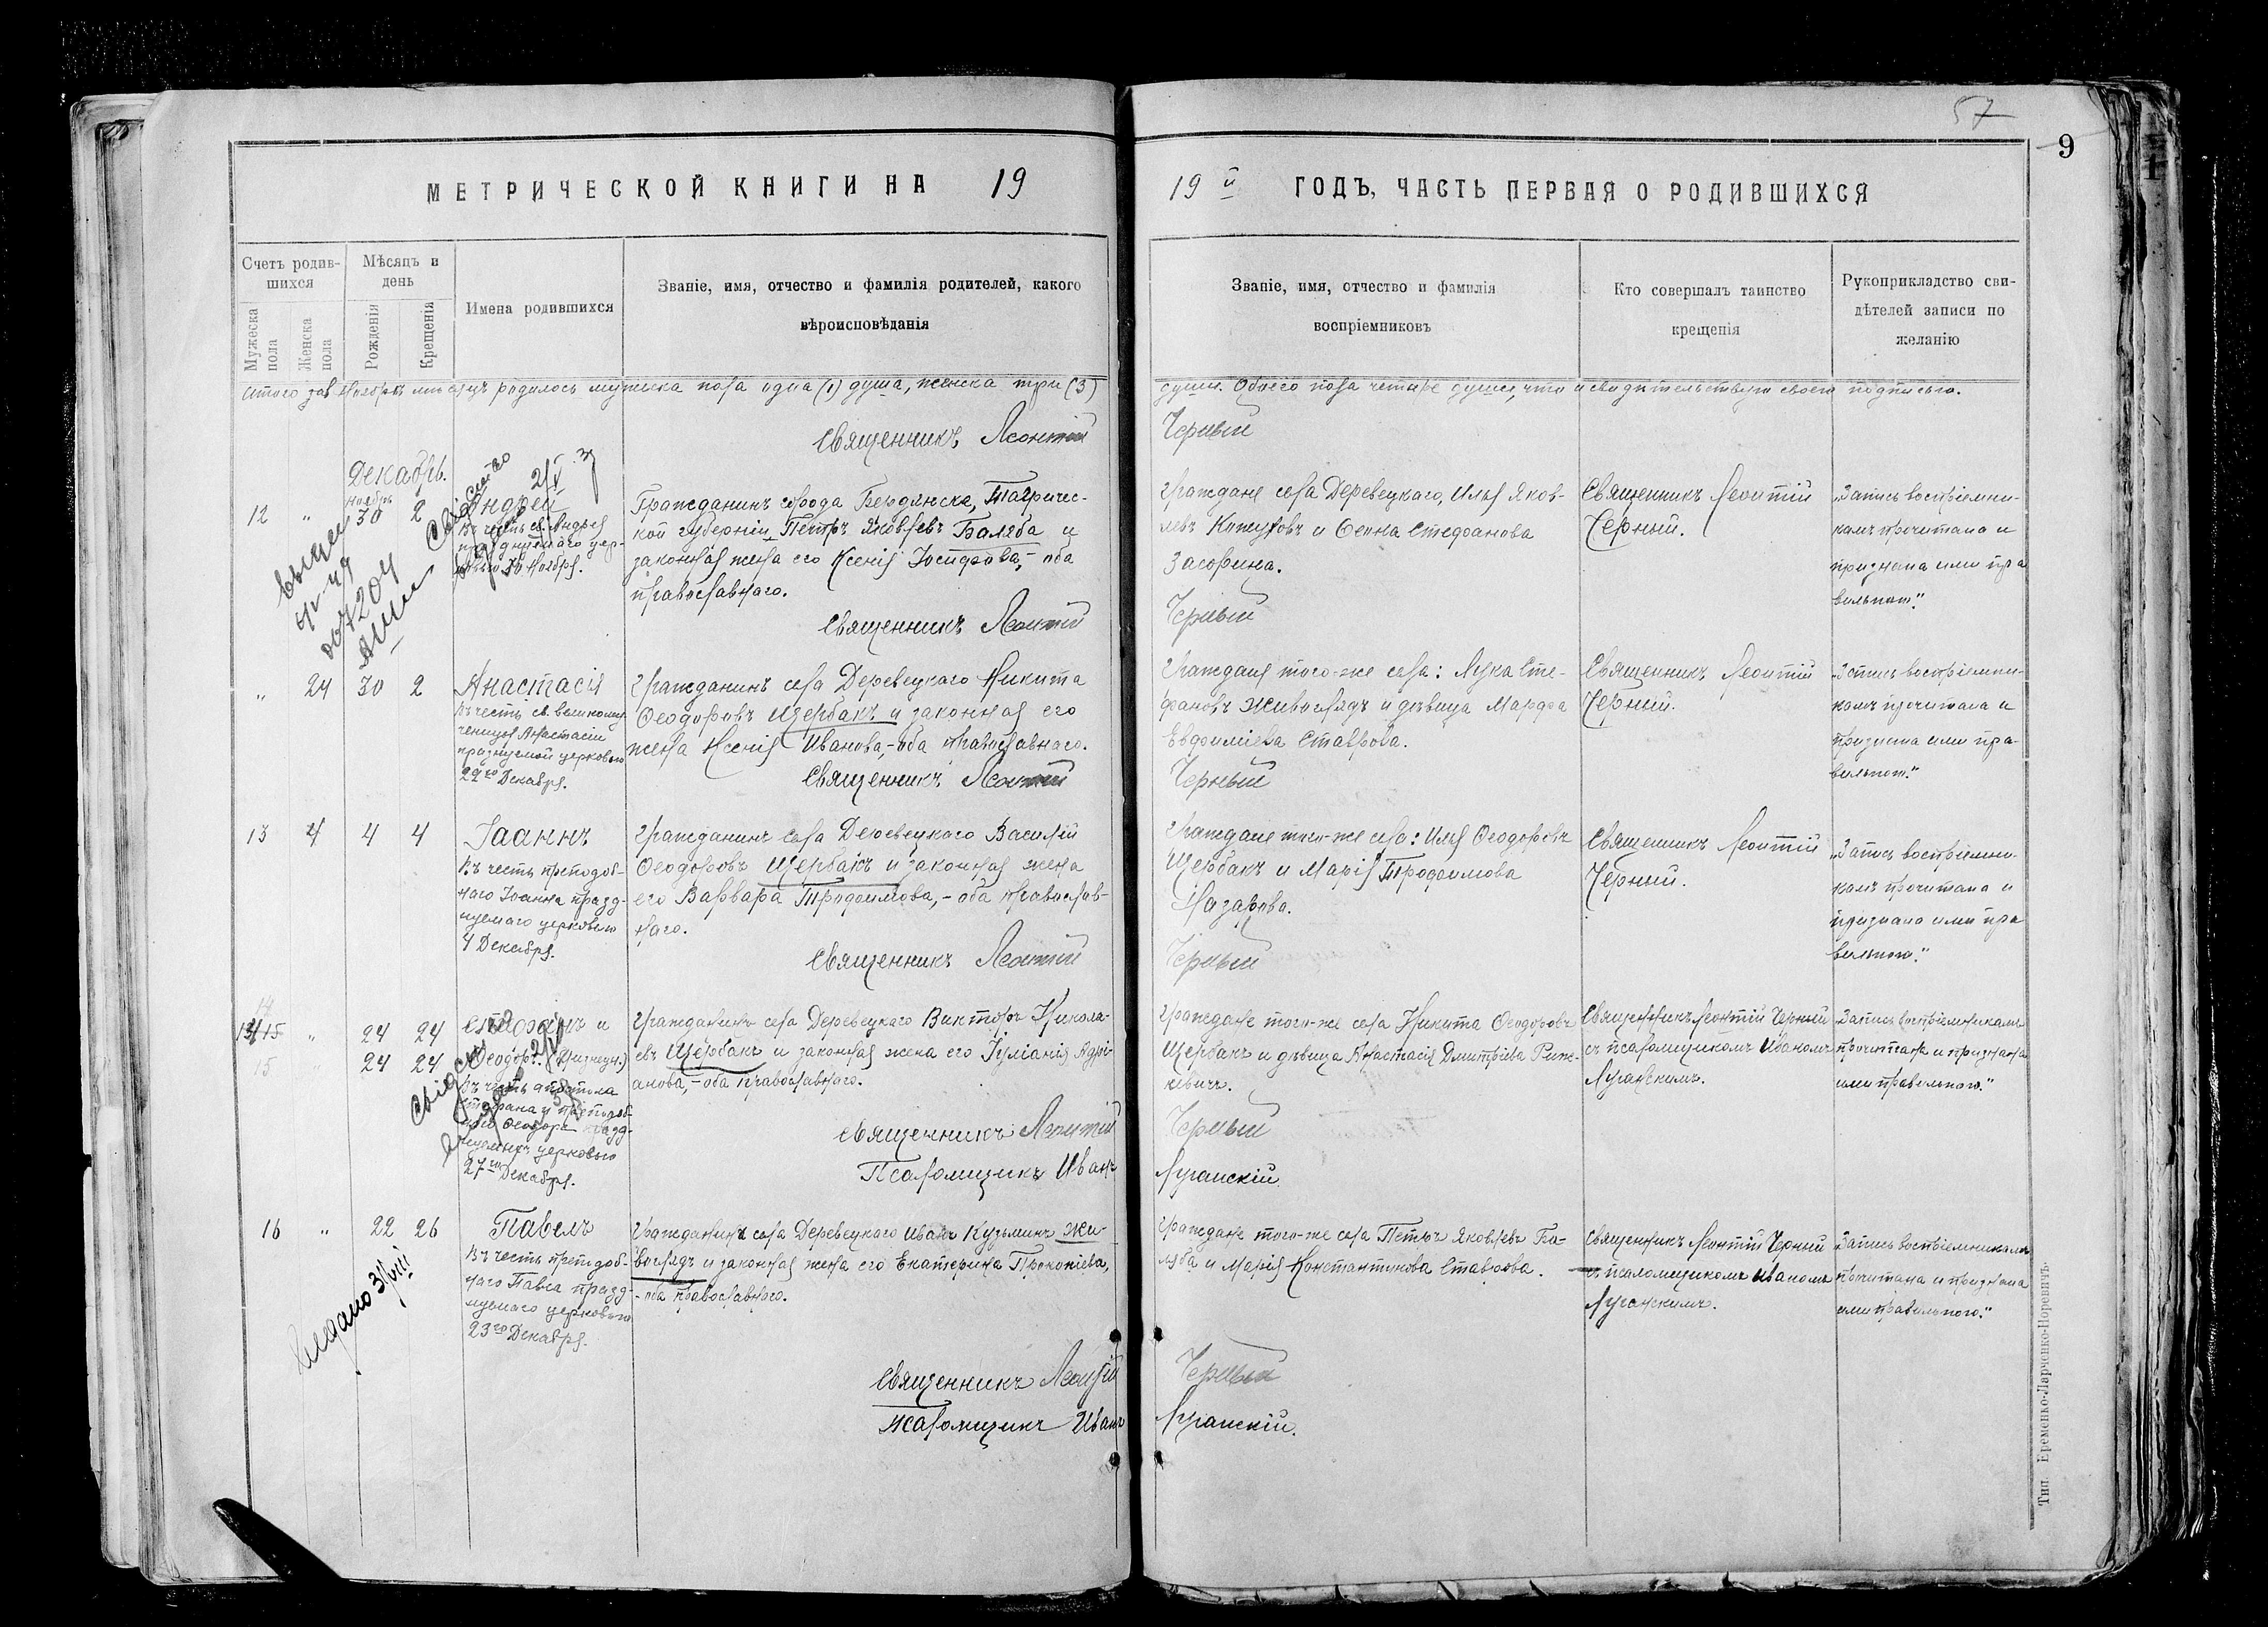 57
9
МЕТРИЧЕСКОЙ КНИГИ НА 19
19й ГОДЪ, ЧАСТЬ ПЕРВАЯ О РОДИВШИХСЯ
Счетъ родив-
шихся
Мужеска
пола
Женска
пола
Мѣсяцъ и
день
Рожденія
Крещенія
Имена родившихся
Званіе, имя, отчество и фамилія родителей, какого
вѣроисповѣданія
Званіе, имя, отчество и фамилія
воспріемниковъ
Кто совершалъ таинство
крещенія
Рукоприкладство сви-
дѣтелей записи по
желанію
Итого за Ноябрь мѣсяцъ родилось мужска пола одна (1) душа, женска три (3)
души. Обоего пола четыре души, что и свидѣтельствую своею подписью.
Священникъ Леонтій
Черный
Декабрь.
12 " Ноябрь 30 2
Андрей
Въ честь св. Андрея
празднуемаго цер-
ковью 30 Ноября.
Гражданинъ города Бердянска, Тавричес-
кой губерніи Петръ Яковлевъ Баляба и
законная жена его Ксенія Іосифова,- оба
православнаго.
Священникъ Леонтій
Граждане села Деревецкаго, Илья Яков-
левъ и Стефанова
Засорина.
Черный
Священникъ Леонтій
Черный.
„Запись воспріемни-
камъ прочитана и
признана ими пра
вильною."
" 24 30 2
Анастасія
Въ честь св. великому-
ченицы Анастасіи
празднуемой церковью
22го Декабря.
Гражданинъ села Деревецкаго Никита
Ѳеодоровъ Щербакъ и законная его
жена Ксенія Иванова,-оба православнаго.
Священникъ Леонтій
Граждане того-же села: Лука Сте-
фановъ Живоглядъ и дѣвица Марфа
Евфиміева Ставрова.
Черный
Священникъ Леонтій
Черный.
„Запись воспріемни-
камъ прочитана и
признана ими пра-
вильною."
13 4 4 4
Іоаннъ
Въ честь преподоб-
наго Іоанна празд-
нуемаго церковью
4 Декабря.
Гражданинъ села Деревецкаго Василій
Ѳеодоровъ Щербакъ и законная жена
его Варвара Трофимова,- оба православ-
наго.
Священникъ Леонтій
Граждане того-же села: Илья Ѳеодоровъ
Щербакъ и Марія Трофимова
Назарова.
Черный
Священникъ Леонтій
Черный.
„Запись воспріемни-
камъ прочитана и
признана ими пра
вильною."
14
15 " 24 24
15 " 24 24
Стефанъ и
Ѳеодоръ. (близнецы)
Въ честь апостола
Стефана и преподоб-
наго Ѳеодора празд-
нуемыхъ церковью
27го Декабря.
Гражданинъ села Деревецкаго Викторъ Никола-
евъ Щербакъ и законная жена его Іуліанія Адрі-
анова,-оба православнаго.
Священникъ Леонтій
Псаломщикъ Иванъ
Граждане того-же села Никита Ѳеодоровъ
Щербакъ и дѣвица Анастасія Дмитріева
Черный
Луганскій
Священникъ Леонтій Черный
съ псаломщикомъ Иваномъ
Луганскимъ.
„Запись воспріемникамъ
прочитана и признана
ими правильною."
16 " 22 26
Павелъ
Въ честь преподоб-
наго Павла празд-
нуемаго церковью
23го Декабря.
Гражданинъ села Деревецкаго Иванъ Кузьминъ Жи-
воглядъ и законная жена его Екатерина Прокопіева,
- оба православнаго.
Священникъ Леонтій
Псаломщикъ Иванъ
Граждане того-же села Петръ Яковлевъ Ба-
ляба и Марія Константинова Ставрова.
Черный
Луганскій.
Священникъ Леонтій Черный
съ псаломщикомъ Иваномъ
Луганскимъ.
„Запись воспріемникамъ
прочитана и признана
ими правильною."
Тип. Еременко-Ларченко-Норевичъ.